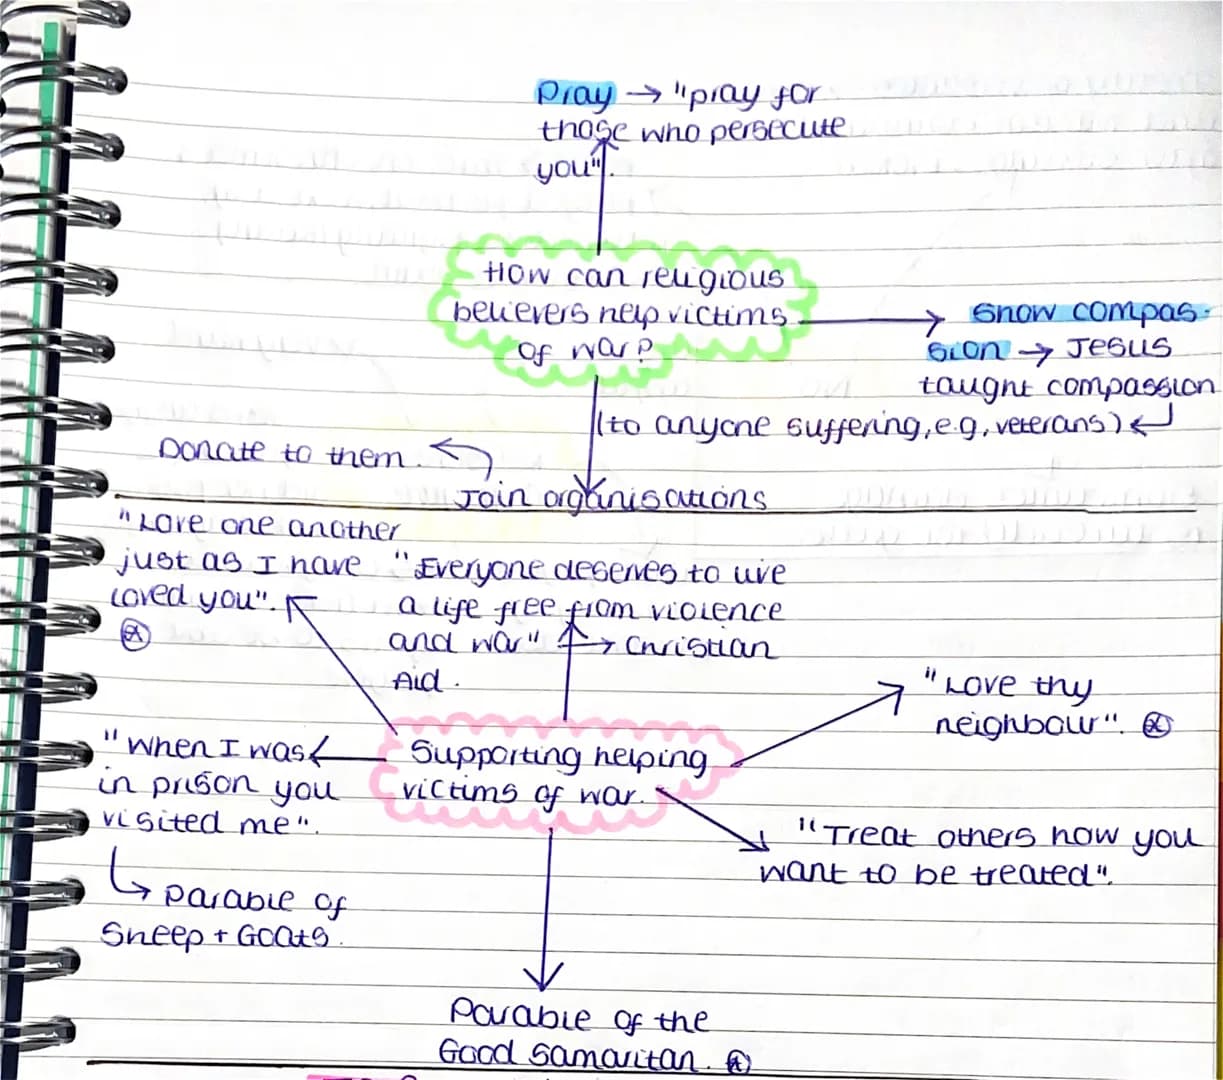 Pray → "pray for
those who persecute
you".
How can religious
believers help victims
of war?
show compas-
sion → Jesus
taught compassion
(to anyone suffering, e.g, veterans)
Donate to them.
Join organisations
"Love one another
just as I have
loved you".
"Everyone deserves to live
a life free from violence
and war" → Christian
Aid.
"Love thy
neighbour".
"When I was
in prison you
visited me".
Supporting helping
victims of war.
"Treat others how you
want to be treated".
Parable of
Sheep + Goats.
Parable of the
Good Samaritan.